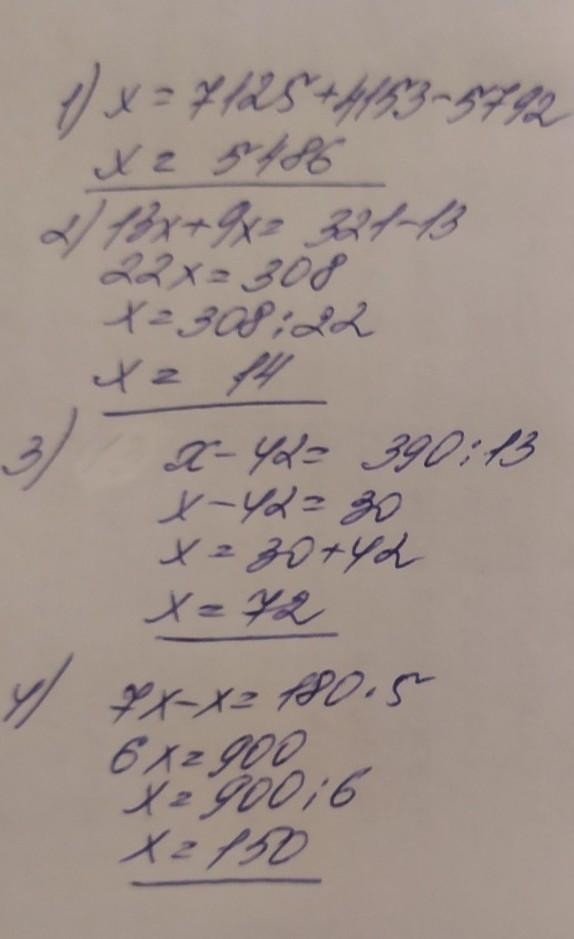 1) x = 7125+4153-5792
x = 5486
2) 13x+9x= 321-13
22x=308
x=308:22
x = 14
3) x-42= 390:13
x-42=30
x=30+42
x=72
4) 7x-x=180·5
6x=900
x=900:6
x=150